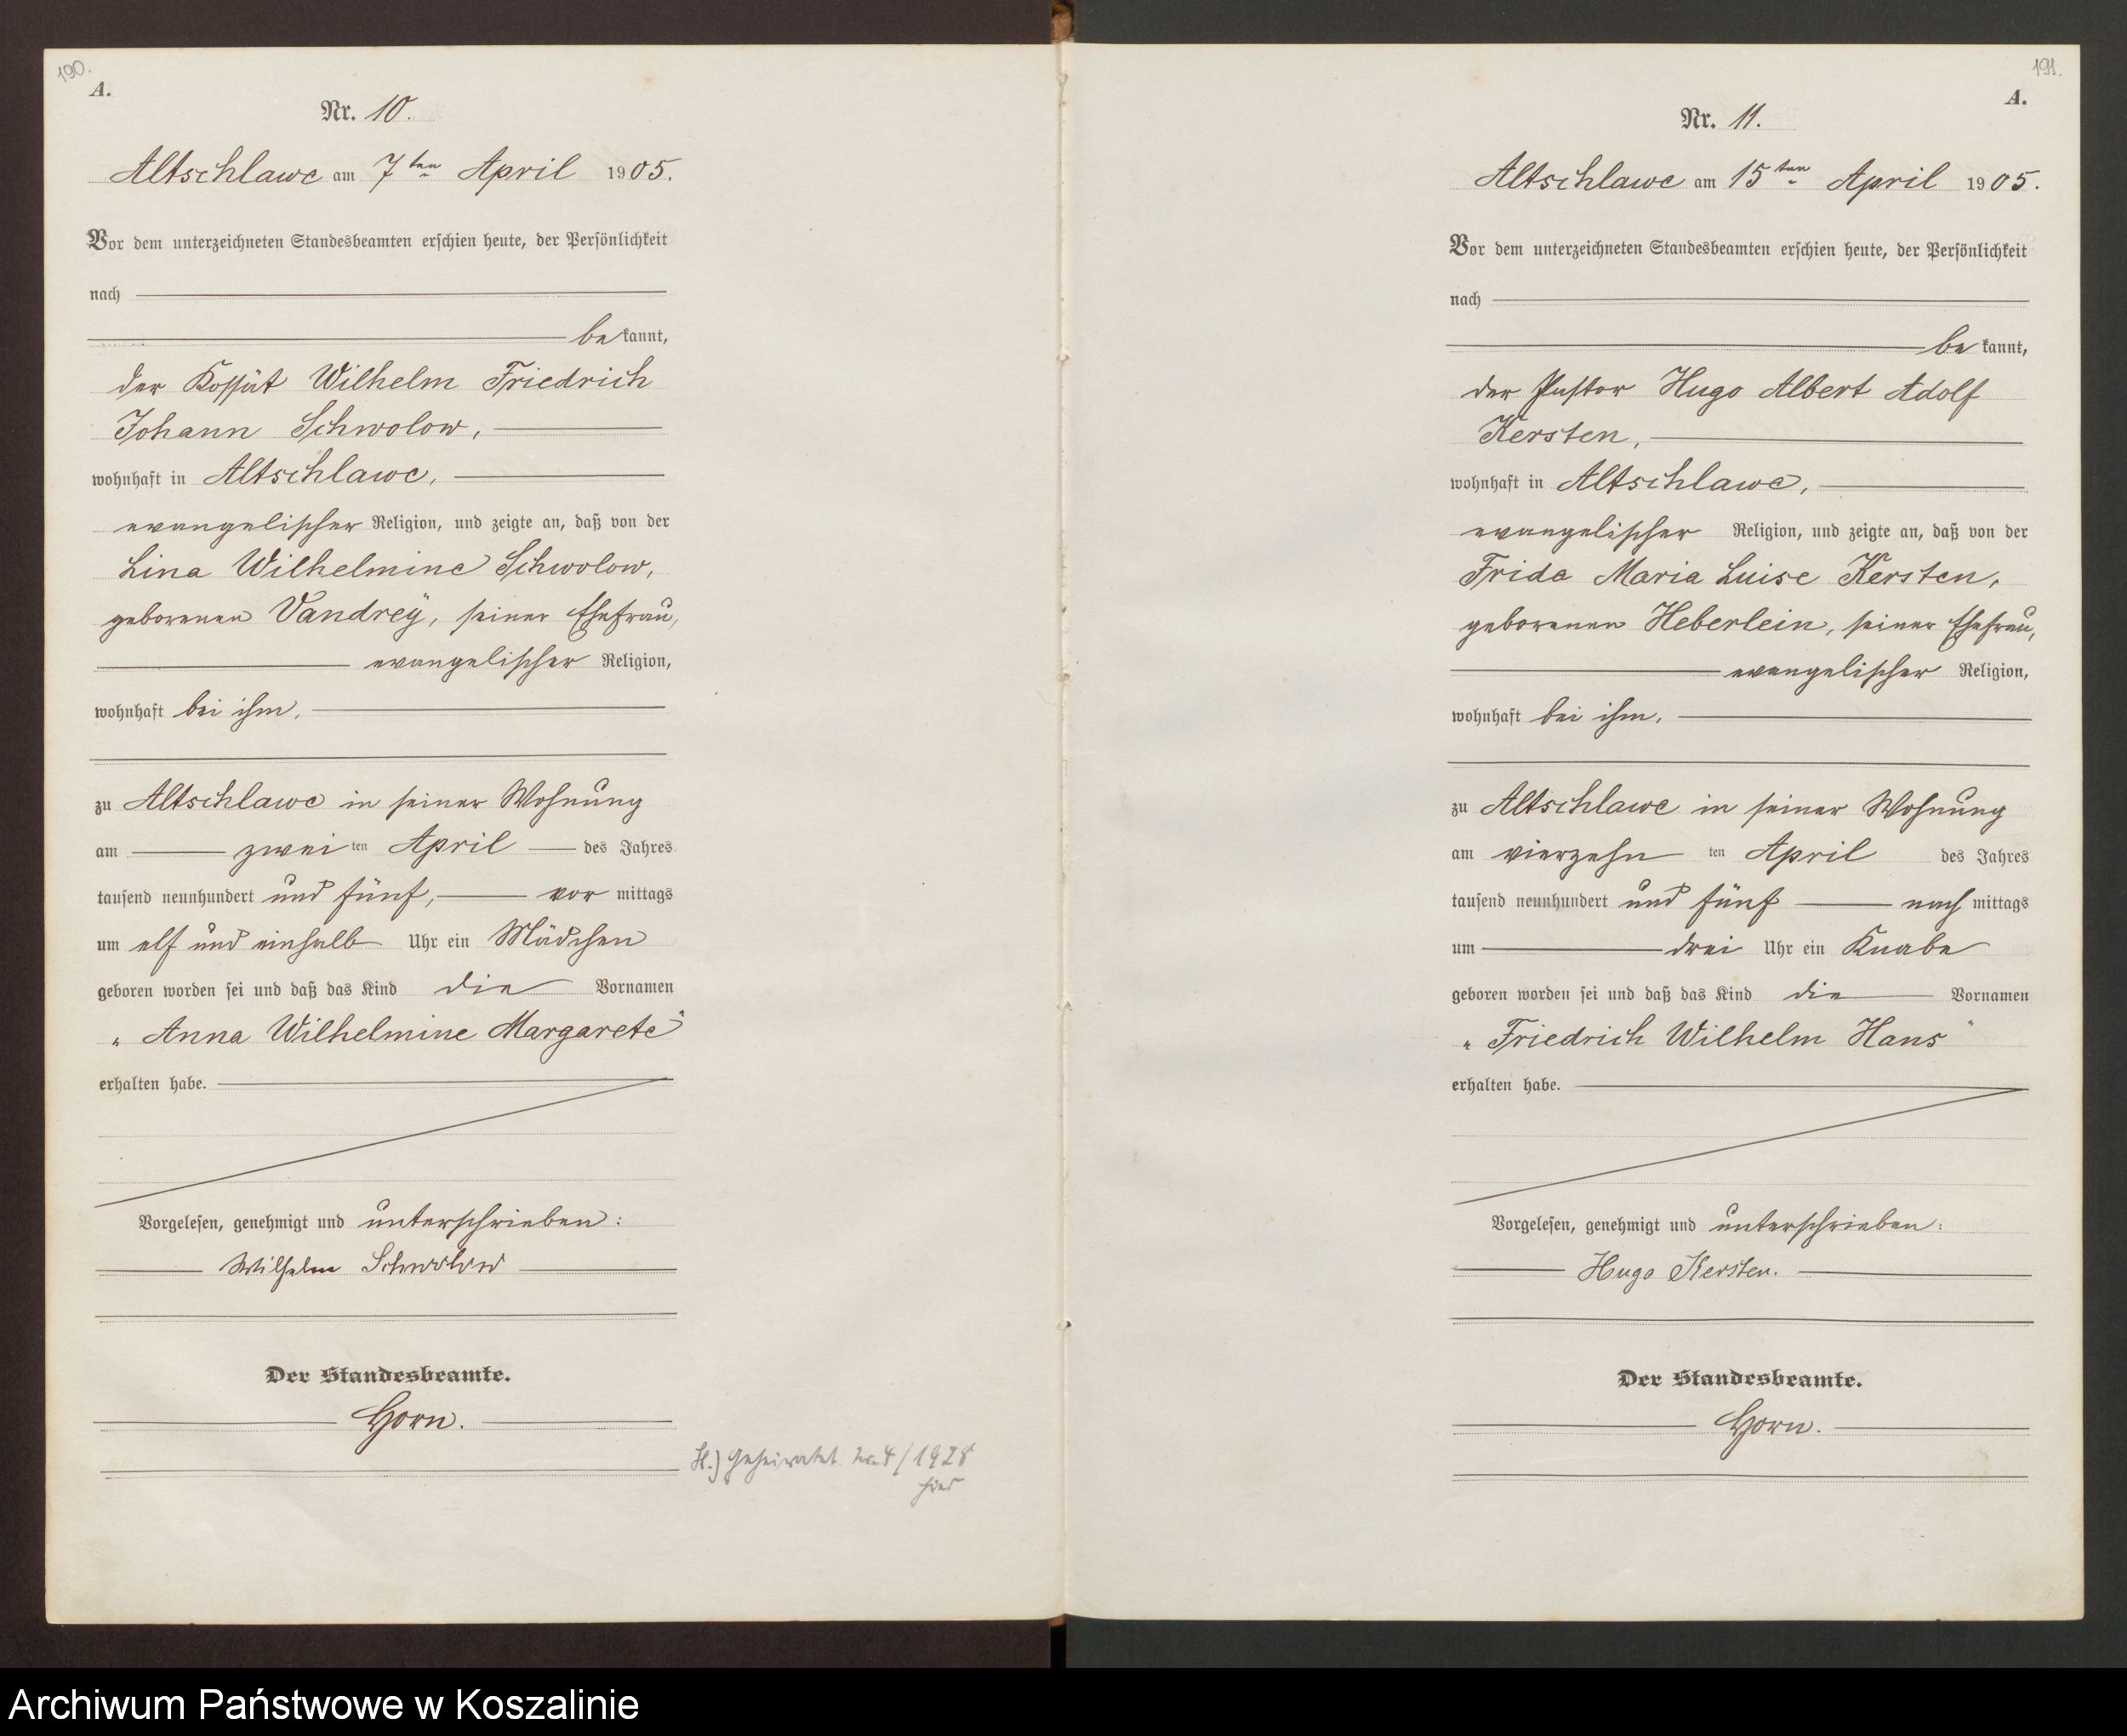 190.
A.
Nr. 10.
Altschlawe am 7ten April 1905.
Vor dem unterzeichneten Standesbeamten erschien heute, der Persönlichkeit
nach
bekannt,
der Kossät Wilhelm Friedrich
Johann Schwolow,
wohnhaft in Altschlawe,
evangelischer Religion, und zeigte an, daß von der
Lina Wilhelmine Schwolow,
geborenen Vandrey, seiner Ehefrau,
evangelischer Religion,
wohnhaft bei ihm,
zu Altschlawe in seiner Wohnung
am zweiten April des Jahres
tausend neunhundert und fünf, vor mittags
um elf und einhalb Uhr ein Mädchen
geboren worden sei und daß das Kind die Vornamen
„Anna Wilhelmine Margarete"
erhalten habe.
Vorgelesen, genehmigt und unterschrieben:
Wilhelm Schwolow
Der Standesbeamte.
Horn.
H.) Geheiratet No 4/1928
hier
191.
A.
Nr. 11.
Altschlawe am 15ten April 1905.
Vor dem unterzeichneten Standesbeamten erschien heute, der Persönlichkeit
nach
bekannt,
der Pastor Hugo Albert Adolf
Kersten,
wohnhaft in Altschlawe,
evangelischer Religion, und zeigte an, daß von der
Frida Maria Luise Kersten,
geborenen Heberlein, seiner Ehefrau,
evangelischer Religion,
wohnhaft bei ihm,
zu Altschlawe in seiner Wohnung
am vierzehnten April des Jahres
tausend neunhundert und fünf nach mittags
um drei Uhr ein Knabe
geboren worden sei und daß das Kind die Vornamen
„Friedrich Wilhelm Hans"
erhalten habe.
Vorgelesen, genehmigt und unterschrieben:
Hugo Kersten.
Der Standesbeamte.
Horn.
Archiwum Państwowe w Koszalinie